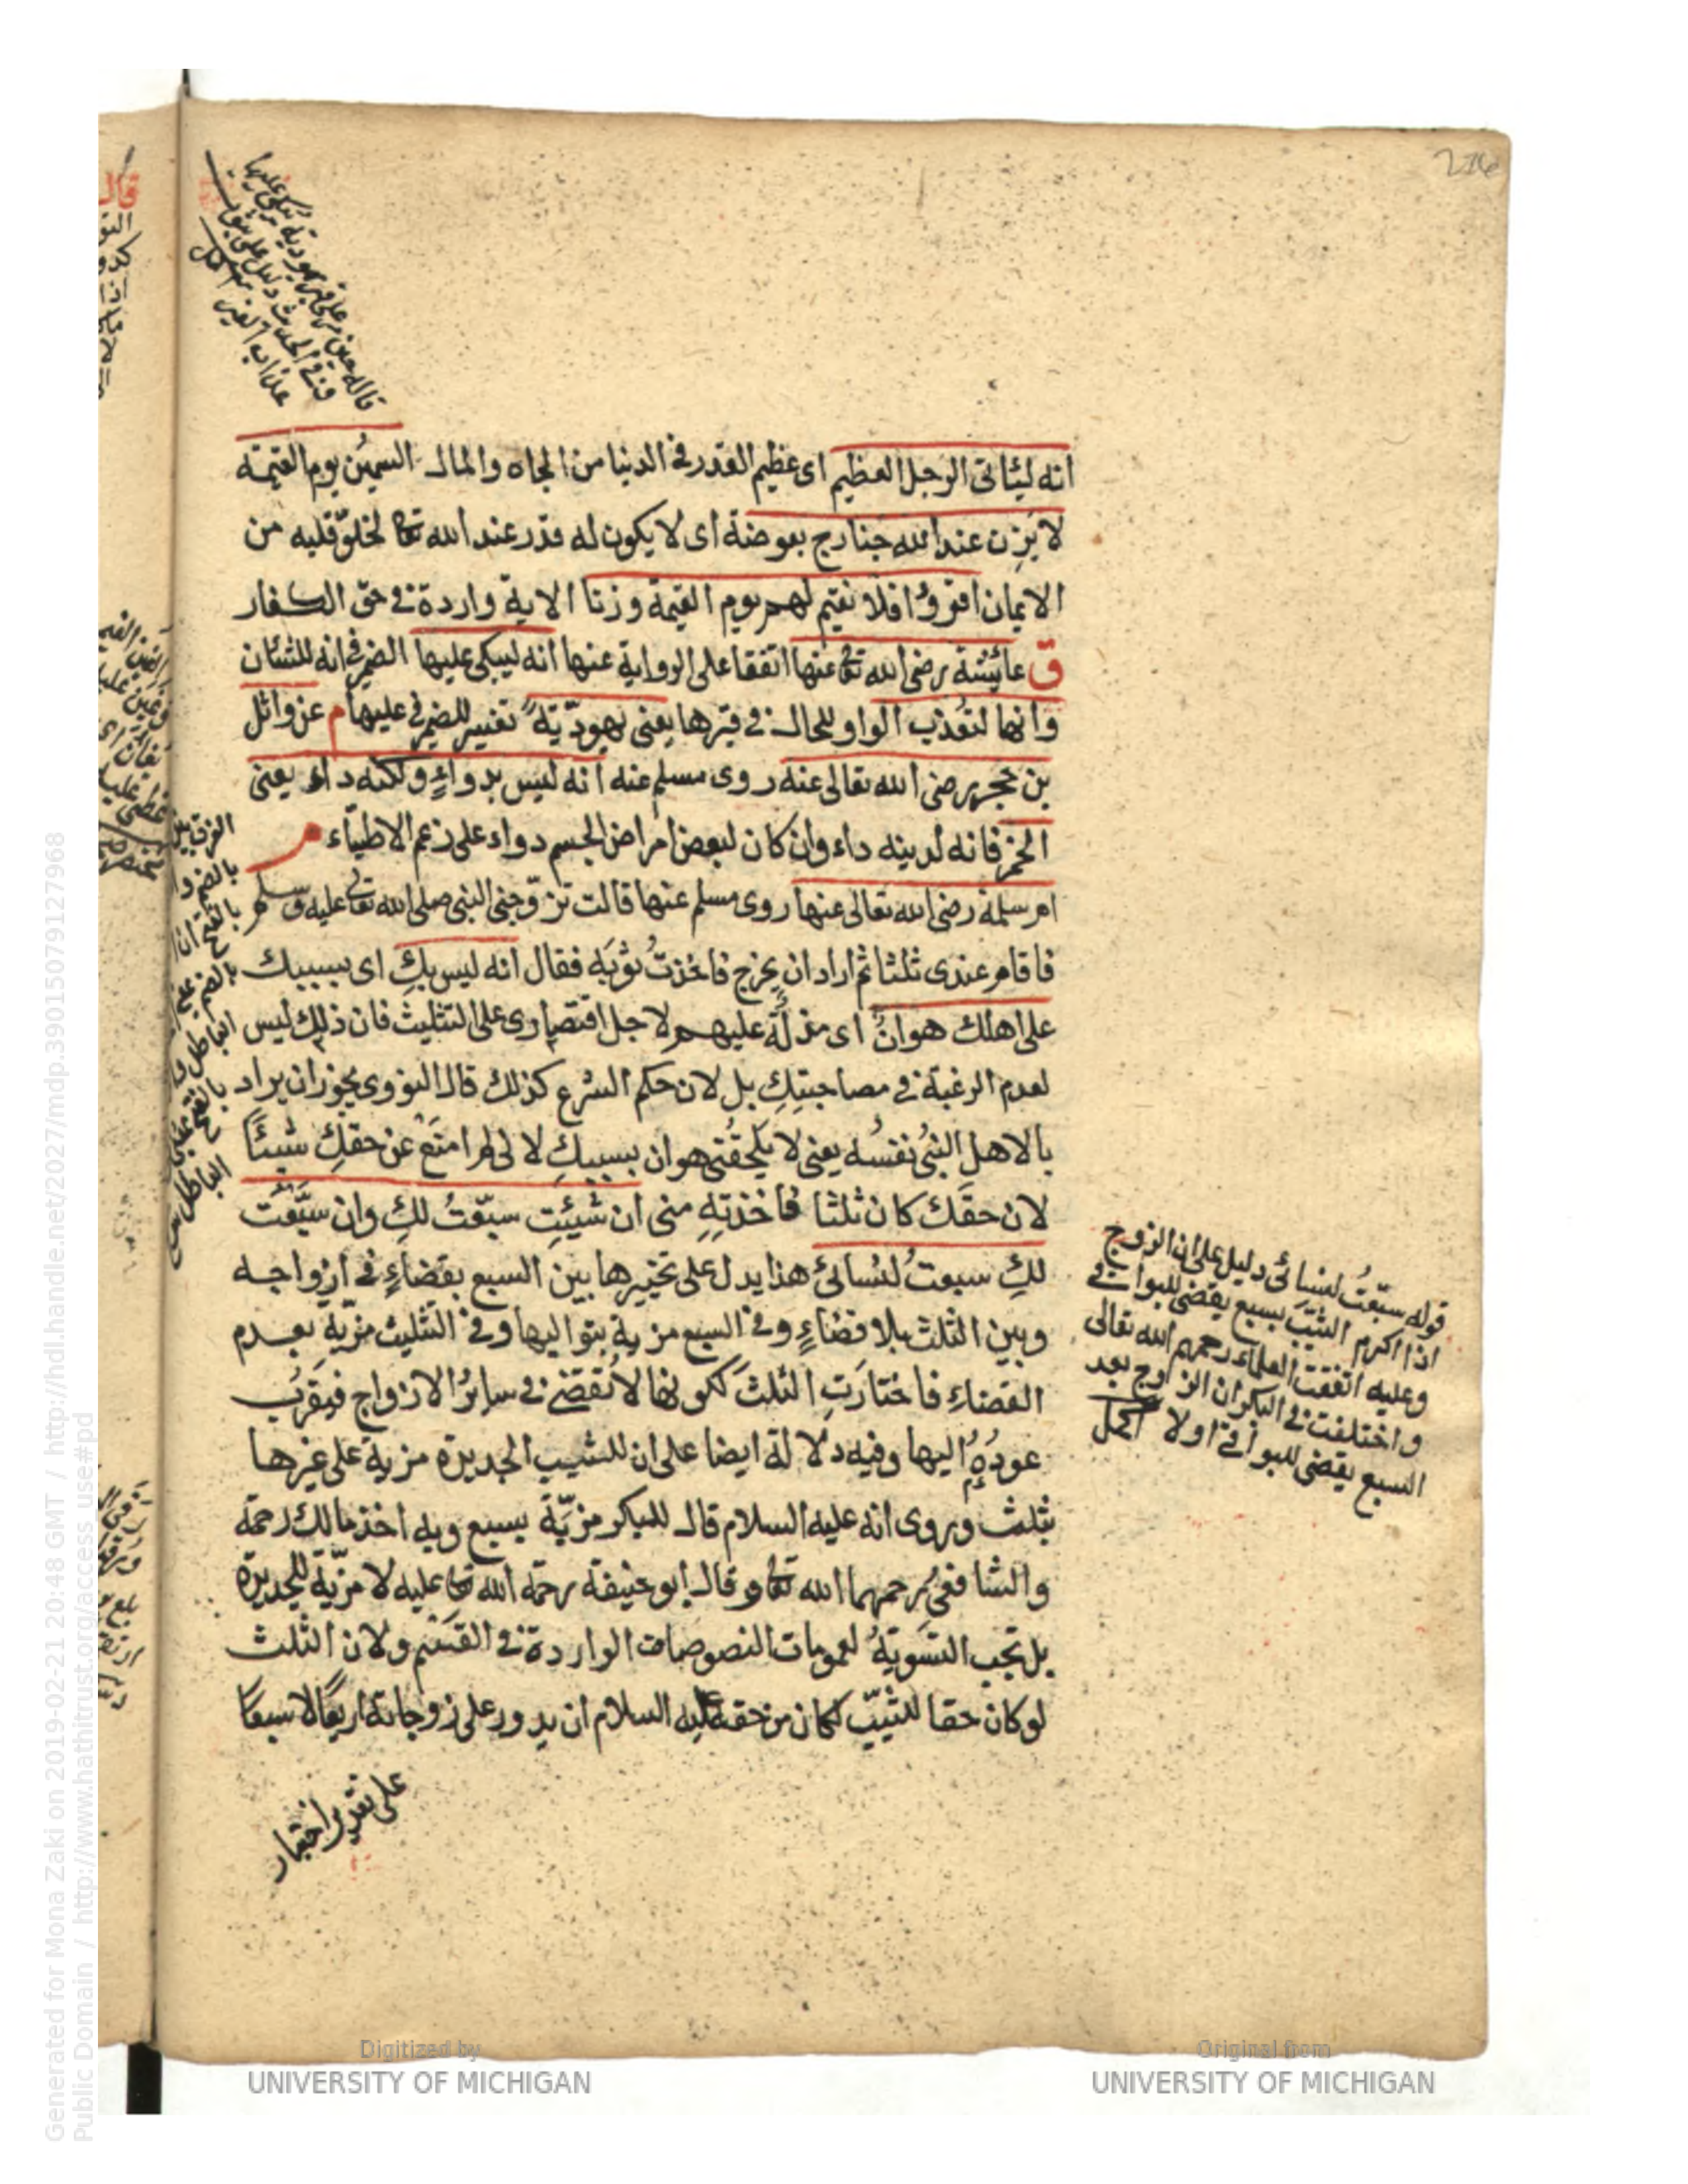 قاله حين مر على قبر يهودية يبكى عليها
فدل الحديث دليل على ثبوت
عذاب القبر اكمل
انه ليئاتى الرجل العظيم اى عظيم القدر فى الدنيا من الجاه والمال السمين يوم القيمة
لا يزن عند الله جناح بعوضة اى لا يكون له قدر عند الله تعا لخلوّ قلبه من
الايمان اقرؤا فلا نقيم لهم يوم القيمة وزنا الاية واردة فى حق الكفار
ق عائشة رضى الله تعا عنها اتفقا على الرواية عنها انه ليبكى عليها الضمير فى انه للشئان
وانها لتعذب الواو للحال فى قبرها يعنى يهوديّة تفسير للضمير فى عليها م عن وائل
بن حجر رضى الله تعالى عنه روى مسلم عنه انه ليس بدواء ولكنه داء يعنى
الخمر فانه لدينه داء وان كان لبعض امراض الجسم دواء على زعم الاطباء م
ام سلمة رضى الله تعالى عنها روى مسلم عنها قالت تزوّجنى النبى صلى الله تعا عليه وسلم
فاقام عندى ثلثا ثم اراد ان يخرج فاخذت ثوبه فقال انه ليس بكِ اى بسببك
على اهلك هوان اى مذلة عليهم لاجل اقتصارى على التثليث فان ذلك ليس
لعدم الرغبة فى مصاحبتكِ بل لان حكم الشرع كذلك قال النووى يجوز ان يراد
بالاهل النبى نفسه يعنى لا يلحقنى هوان بسببكِ لانى لم امنع عن حقكِ شيئا
لان حقك كان ثلثا فاخذتِه منى ان شئتِ سبّعتُ لكِ وان سبّعت
لكِ سبعتُ لنسائى هذا يدل على تخييرها بين السبع بقضاء فى ازواجه
وبين الثلث بلا قضاء وفى السبع مزية بتواليها وفى التثليث مزية بعدم
القضاء فاختارت الثلث لكونها لا تقضى فى سائر الازواج فيقرب
عوده اليها وفيه دلالة ايضا على ان للثيب الجديدة مزية على غيرها
بثلث وروى انه عليه السلام قال للبكر مزيّة بسبع وبه اخذ مالك رحمة
والشافعى رحمهما الله تعا وقال ابو حنيفة رحمة الله تعا عليه لا مزيّة للجديدة
بل تجب التسوية لعمومات النصوصات الواردة فى القسم ولان الثلث
لو كان حقا للثيّب لكان من حقه عليه السلام ان يدور على زوجاته اربعًا لا سبعًا
على تقدير اختيار
قوله سبّعتُ لنسائى دليل على ان الزوج
اذا اكرم الثيّب بسبع يقضى للبواقى
وعليه اتفقت العلماء رحمهم الله تعالى
واختلفت فى البكر ان الزوج بعد
السبع يقضى للبواقى اولا اكمل